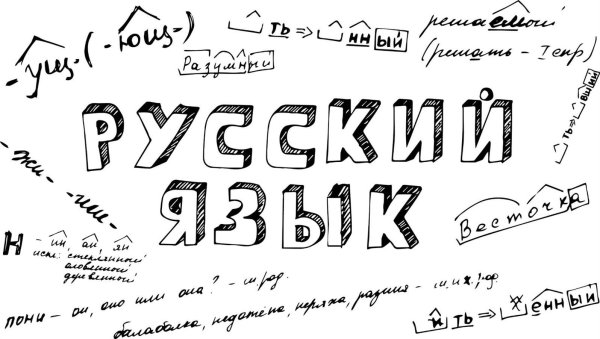 -ущ- (-ющ-)
ть ⇒ нный
Разумный
решаемый
(решать – I спр)
ть ⇒ вший
РУССКИЙ
ЯЗЫК
-жи- -ши-
Весточка
Н – ин, ан, ян
искл: стеклянный
оловянный
деревянный
пони – он, оно или она? – м.род.
балаболка, недотёпа, неряха, разиня – м. и ж. род
ить ⇒ енный